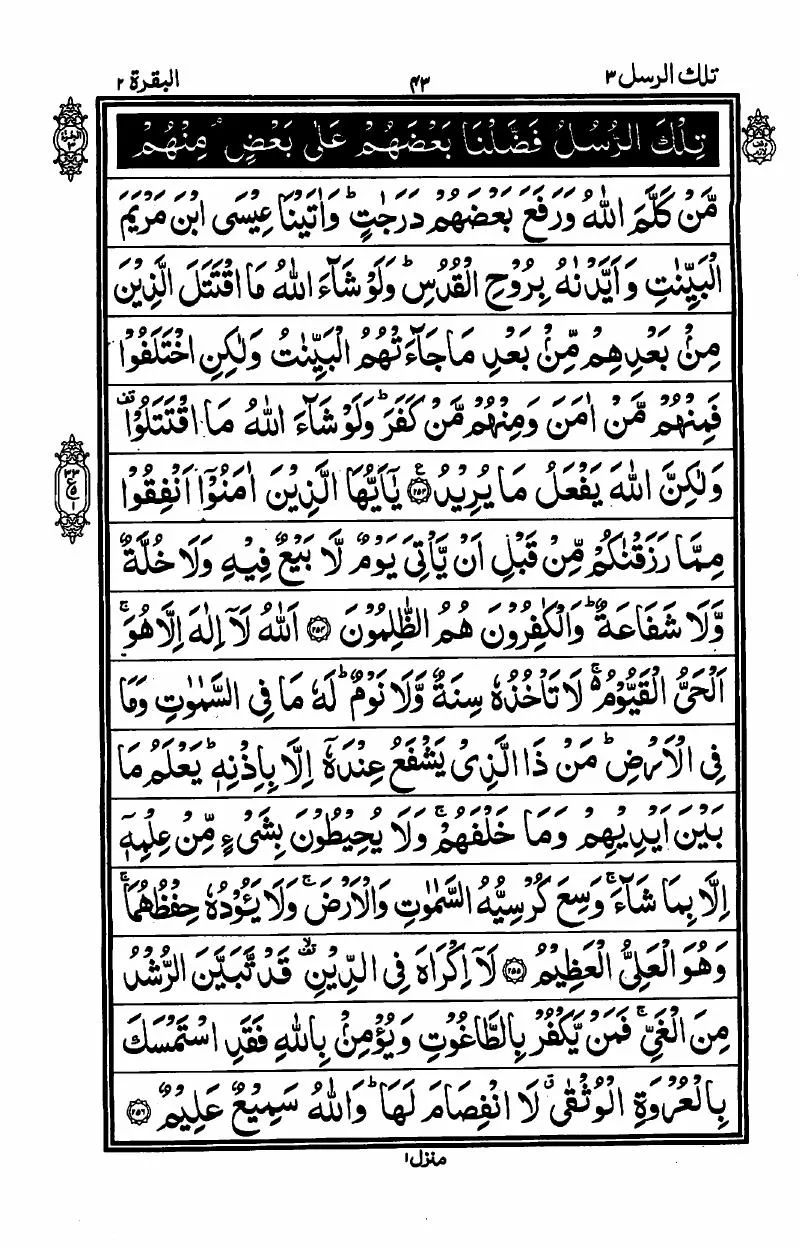 تلك الرسل ٣
٤٣
البقرة ٢
تِلْكَ الرُّسُلُ فَضَّلْنَا بَعْضَهُمْ عَلٰى بَعْضٍ ۘ مِنْهُمْ
مَّنْ كَلَّمَ اللّٰهُ وَرَفَعَ بَعْضَهُمْ دَرَجٰتٍ ؕ وَاٰتَيْنَا عِيْسَى ابْنَ مَرْيَمَ
الْبَيِّنٰتِ وَاَيَّدْنٰهُ بِرُوْحِ الْقُدُسِ ؕ وَلَوْ شَآءَ اللّٰهُ مَا اقْتَتَلَ الَّذِيْنَ
مِنْۢ بَعْدِهِمْ مِّنْۢ بَعْدِ مَا جَآءَتْهُمُ الْبَيِّنٰتُ وَلٰكِنِ اخْتَلَفُوْا
فَمِنْهُمْ مَّنْ اٰمَنَ وَمِنْهُمْ مَّنْ كَفَرَ ؕ وَلَوْ شَآءَ اللّٰهُ مَا اقْتَتَلُوْا ۟
وَلٰكِنَّ اللّٰهَ يَفْعَلُ مَا يُرِيْدُ ﴿٢٥٣﴾ يٰۤاَيُّهَا الَّذِيْنَ اٰمَنُوْۤا اَنْفِقُوْا
مِمَّا رَزَقْنٰكُمْ مِّنْ قَبْلِ اَنْ يَّاْتِيَ يَوْمٌ لَّا بَيْعٌ فِيْهِ وَلَا خُلَّةٌ
وَّلَا شَفَاعَةٌ ؕ وَالْكٰفِرُوْنَ هُمُ الظّٰلِمُوْنَ ﴿٢٥٤﴾ اَللّٰهُ لَاۤ اِلٰهَ اِلَّا هُوَ ۚ
اَلْحَيُّ الْقَيُّوْمُ ۚ لَا تَاْخُذُهٗ سِنَةٌ وَّلَا نَوْمٌ ؕ لَهٗ مَا فِى السَّمٰوٰتِ وَمَا
فِى الْاَرْضِ ؕ مَنْ ذَا الَّذِىْ يَشْفَعُ عِنْدَهٗۤ اِلَّا بِاِذْنِهٖ ؕ يَعْلَمُ مَا
بَيْنَ اَيْدِيْهِمْ وَمَا خَلْفَهُمْ ۚ وَلَا يُحِيْطُوْنَ بِشَىْءٍ مِّنْ عِلْمِهٖۤ
اِلَّا بِمَا شَآءَ ۚ وَسِعَ كُرْسِيُّهُ السَّمٰوٰتِ وَالْاَرْضَ ۚ وَلَا يَـُٔوْدُهٗ حِفْظُهُمَا ۚ
وَهُوَ الْعَلِىُّ الْعَظِيْمُ ﴿٢٥٥﴾ لَاۤ اِكْرَاهَ فِى الدِّيْنِ ۟ۙ قَدْ تَّبَيَّنَ الرُّشْدُ
مِنَ الْغَىِّ ۚ فَمَنْ يَّكْفُرْ بِالطَّاغُوْتِ وَيُؤْمِنْۢ بِاللّٰهِ فَقَدِ اسْتَمْسَكَ
بِالْعُرْوَةِ الْوُثْقٰى ۗ لَا انْفِصَامَ لَهَا ؕ وَاللّٰهُ سَمِيْعٌ عَلِيْمٌ ﴿٢٥٦﴾
منزل ١